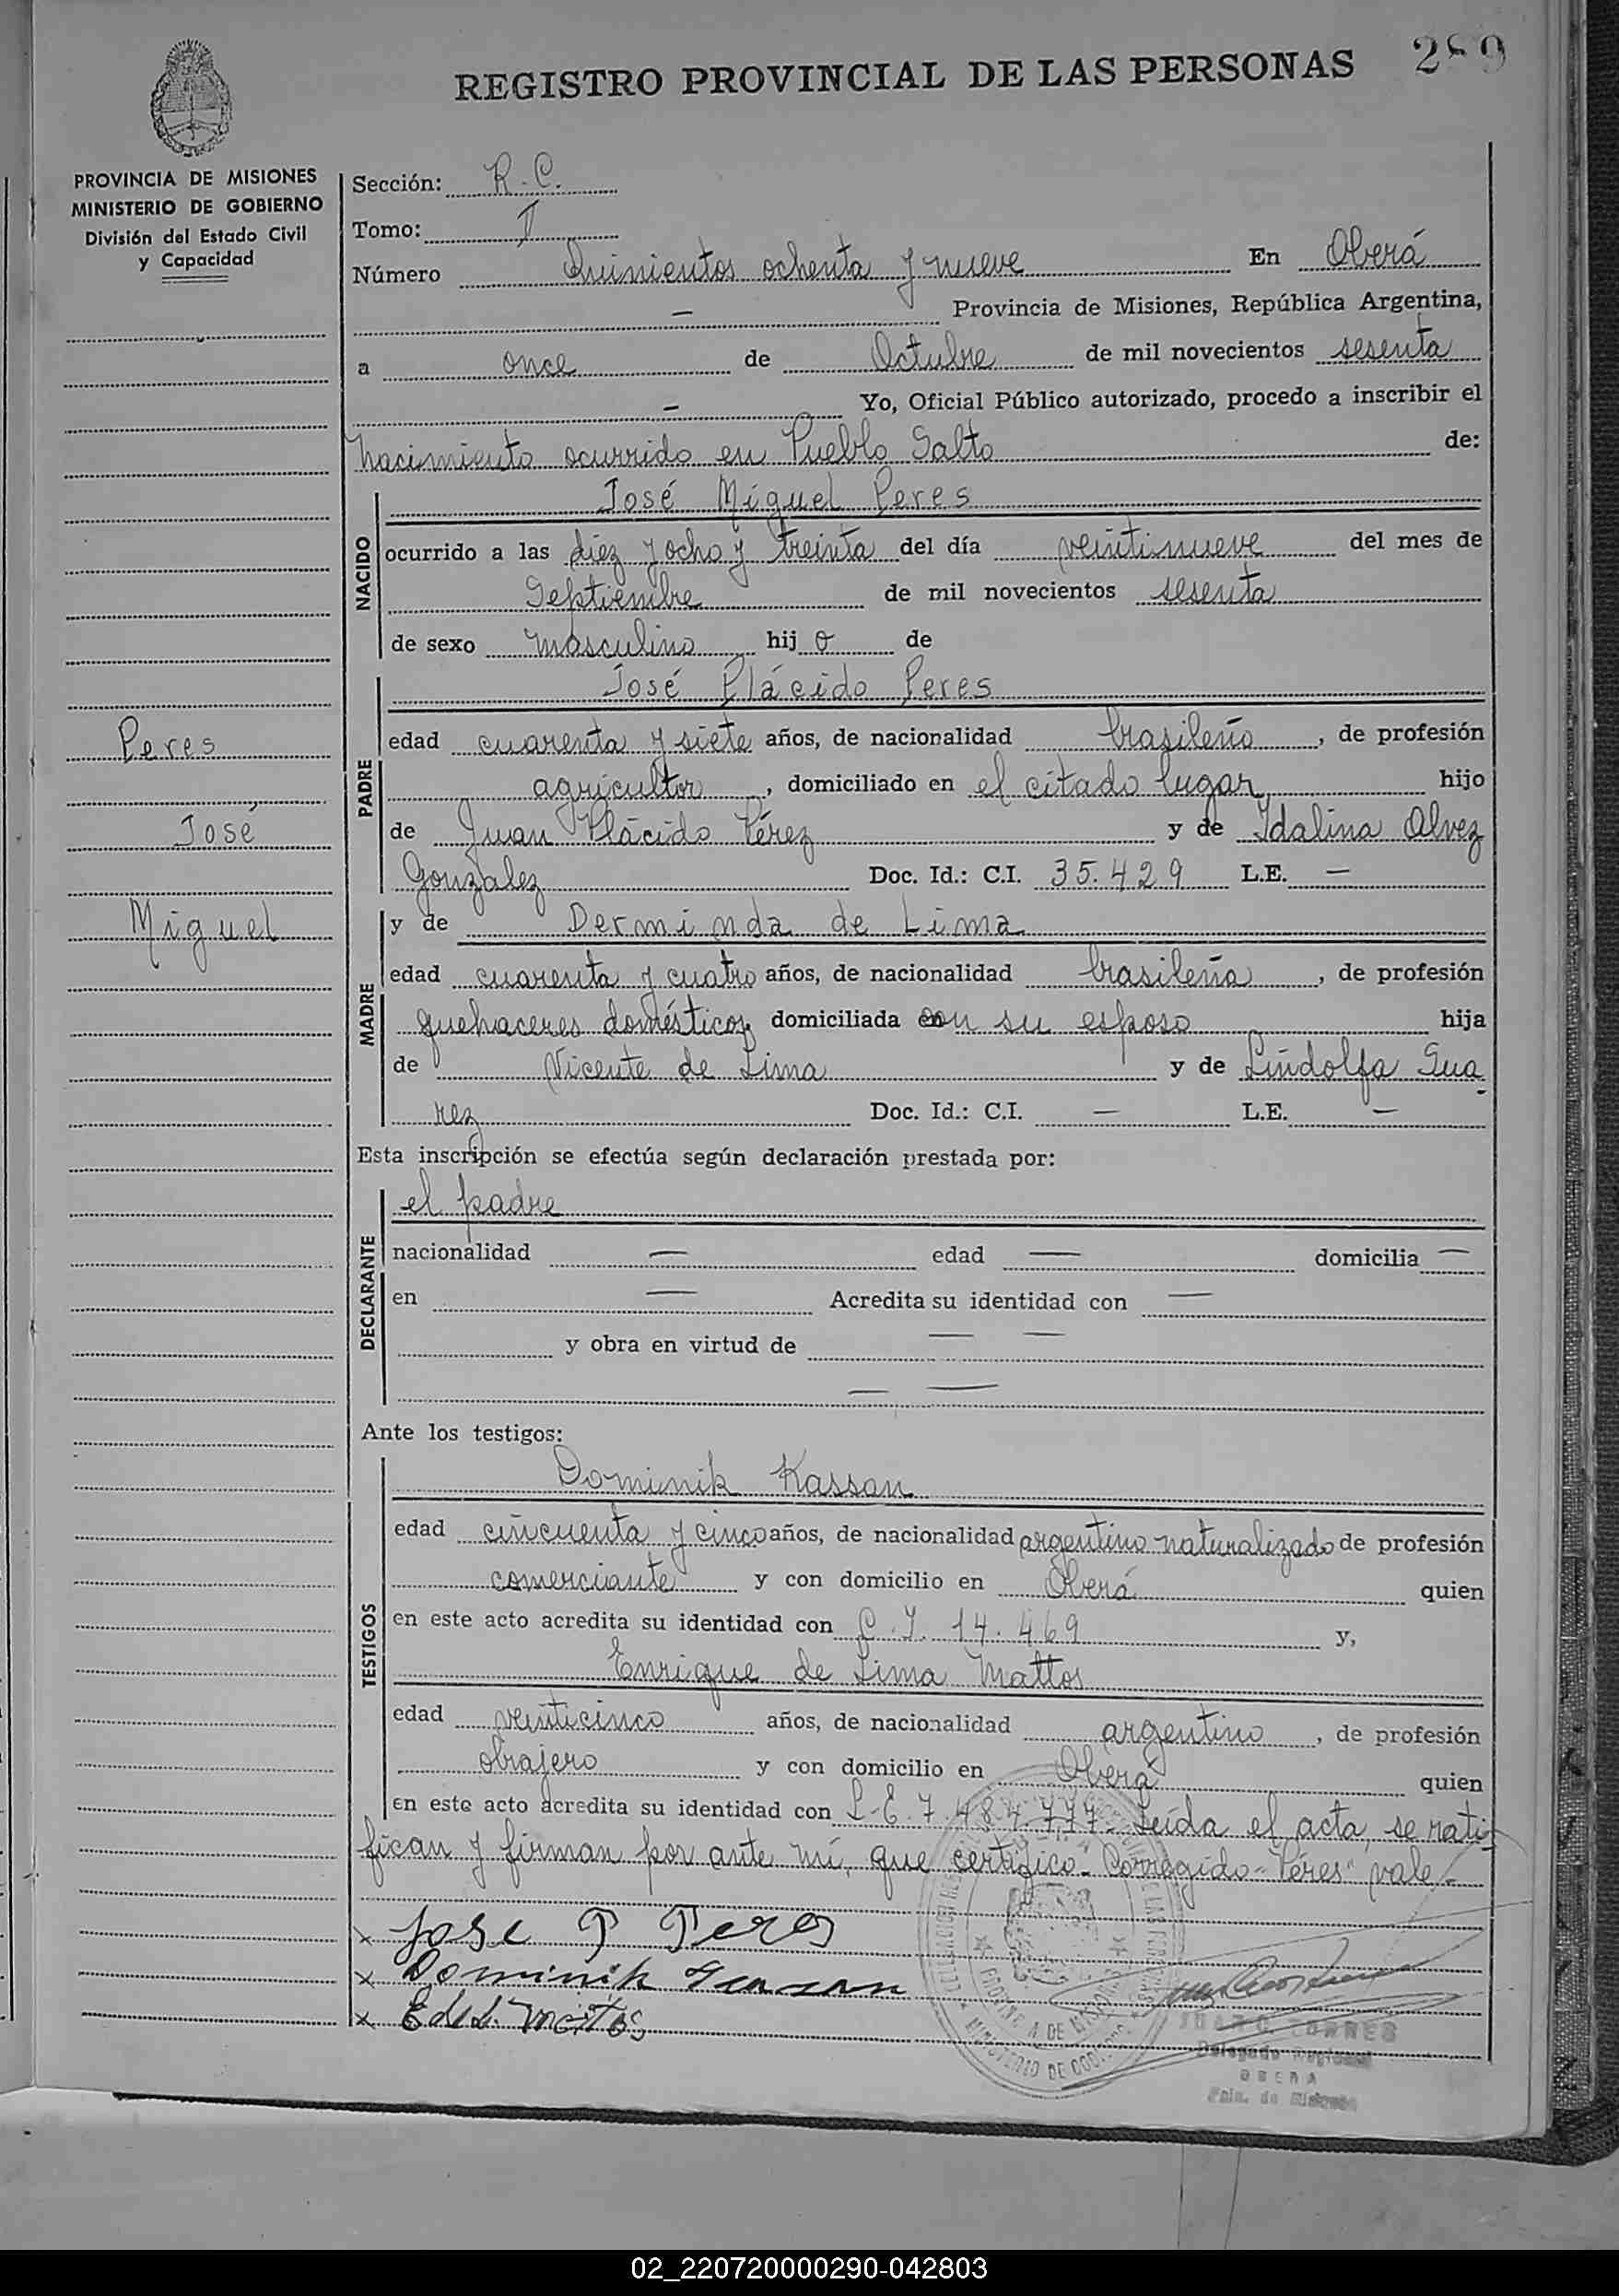 289
REGISTRO PROVINCIAL DE LAS PERSONAS
PROVINCIA DE MISIONES
MINISTERIO DE GOBIERNO
División del Estado Civil
y Capacidad
Peres
José
Miguel
Sección: R. C.
Tomo: I
Número Quinientos ochenta y nueve En Oberá
— Provincia de Misiones, República Argentina,
a once de Octubre de mil novecientos sesenta
— Yo, Oficial Público autorizado, procedo a inscribir el
nacimiento ocurrido en Pueblo Salto de:
NACIDO
José Miguel Peres
ocurrido a las diez y ocho y treinta del día veintinueve del mes de
Septiembre de mil novecientos sesenta
de sexo masculino hij o de
PADRE
José Plácido Peres
edad cuarenta y siete años, de nacionalidad brasileño, de profesión
agricultor, domiciliado en el citado lugar hijo
de Juan Plácido Pérez y de Idalina Alvez
Gonzalez Doc. Id.: C.I. 35.429 L.E. —
MADRE
y de Derminda de Lima
edad cuarenta y cuatro años, de nacionalidad brasileña, de profesión
quehaceres domésticos, domiciliada con su esposo hija
de Vicente de Lima y de Lindolfa Sua
rez Doc. Id.: C.I. — L.E. —
Esta inscripción se efectúa según declaración prestada por:
DECLARANTE
el padre
nacionalidad — edad — domicilia —
en — Acredita su identidad con —
y obra en virtud de — —
— —
Ante los testigos:
TESTIGOS
Dominik Kassan
edad cincuenta y cinco años, de nacionalidad argentino naturalizado de profesión
comerciante y con domicilio en Oberá quien
en este acto acredita su identidad con C. I. 14.469 y,
Enrique de Lima Mattos
edad veinticinco años, de nacionalidad argentino, de profesión
obrajero y con domicilio en Oberá quien
en este acto acredita su identidad con L-E. 7.484.777- Leída el acta, se rati-
fican y firman por ante mí, que certifico.- Corregido- "Péres" vale.-
x Jose P Peres
x Dominik
x
PROVINCIA DE MISIONES
MINISTERIO DE GOBIERNO
TORRES
Delegado Regional
OBERA
Pcia. de Misiones
02_220720000290-042803